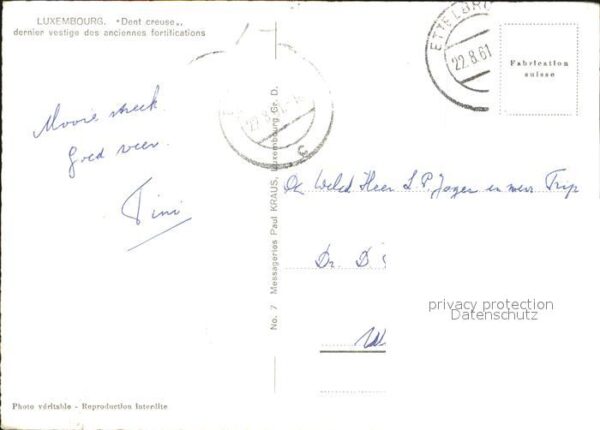 LUXEMBOURG. "Dent creuse",
dernier vestige des anciennes fortifications
Mooie streek
Goed weer.
Tini
No. 7 Messageries Paul KRAUS, Luxembourg Gr. D.
ETTELBRU
22.8.61
22.8.
Fabrication
suisse
Heer S. P. Jager en mevr Trip
Dr. D
privacy protection
Datenschutz
Photo véritable - Reproduction interdite